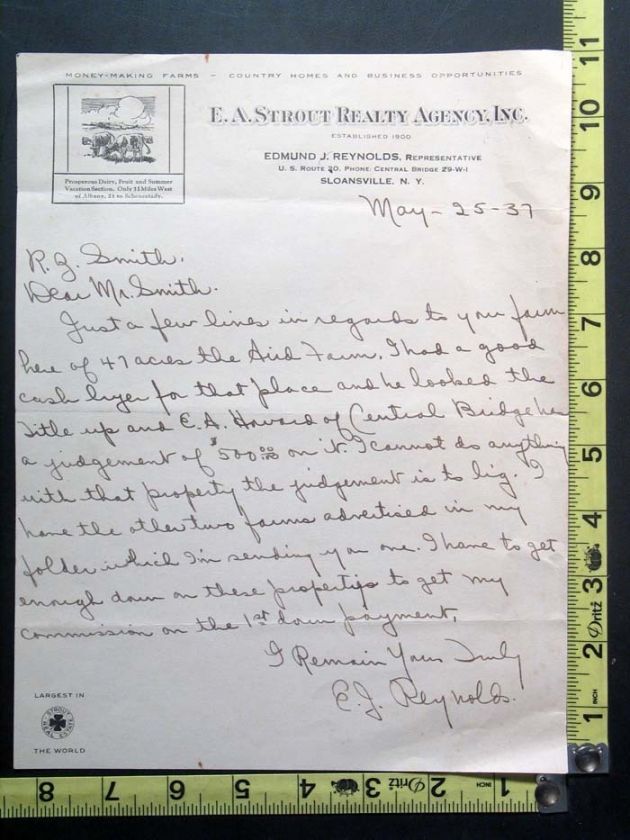 MONEY-MAKING FARMS - COUNTRY HOMES AND BUSINESS OPPORTUNITIES
E. A. STROUT REALTY AGENCY, INC.
ESTABLISHED 1900
EDMUND J. REYNOLDS, REPRESENTATIVE
U. S. ROUTE 20, PHONE: CENTRAL BRIDGE 29-W-1
SLOANSVILLE, N. Y.
Prosperous Dairy, Fruit and Summer
Vacation Section. Only 33 Miles West
of Albany, 21 to Schenectady.
May - 25 - 37
R. Z. Smith.
Dear Mr. Smith.
Just a few lines in regards to your farm
here of 47 acres the Aird Farm. I had a good
cash buyer for that place and he looked the
title up and E. A. Howard of Central Bridge has
a judgement of $500.00 on it. I cannot do anything
with that property the judgement is to big. I
have the other two farms advertised in my
folder which I'm sending you one. I have to get
enough down on these properties to get my
commission on the 1st down payment.
I Remain Yours Truly
E. J. Reynolds.
LARGEST IN
STROUT
REAL ESTATE
THE WORLD
11
10
9
8
7
6
5
4
Dritz 3
2
1 INCH
8 7 6 5 4 3 Dritz 2 1 INCH